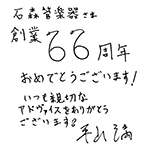 石森管楽器さま
創業66周年
おめでとうございます!
いつも親切な
アドヴァイスをありがとう
ございます。